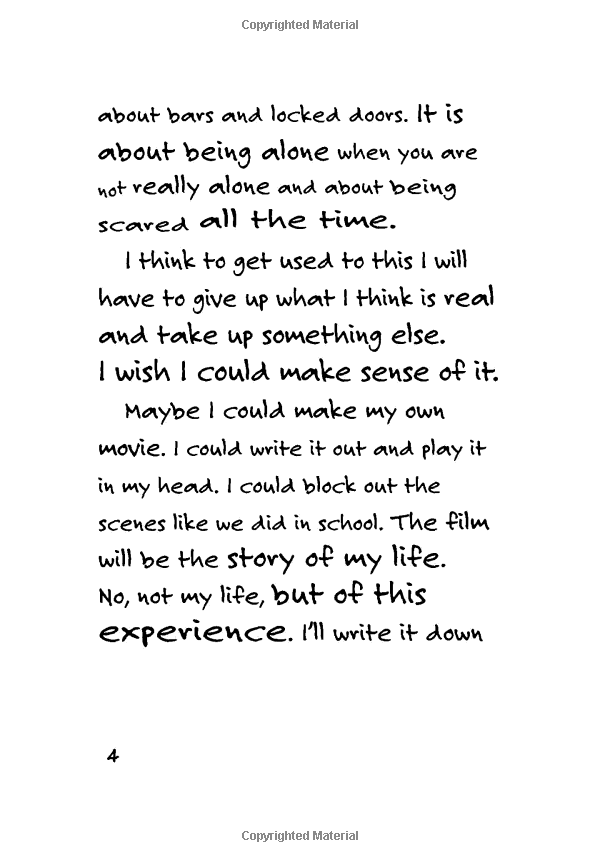 Copyrighted Material
about bars and locked doors. It is
about being alone when you are
not really alone and about being
scared all the time.
I think to get used to this I will
have to give up what I think is real
and take up something else.
I wish I could make sense of it.
Maybe I could make my own
movie. I could write it out and play it
in my head. I could block out the
scenes like we did in school. The film
will be the story of my life.
No, not my life, but of this
experience. I'll write it down
4
Copyrighted Material